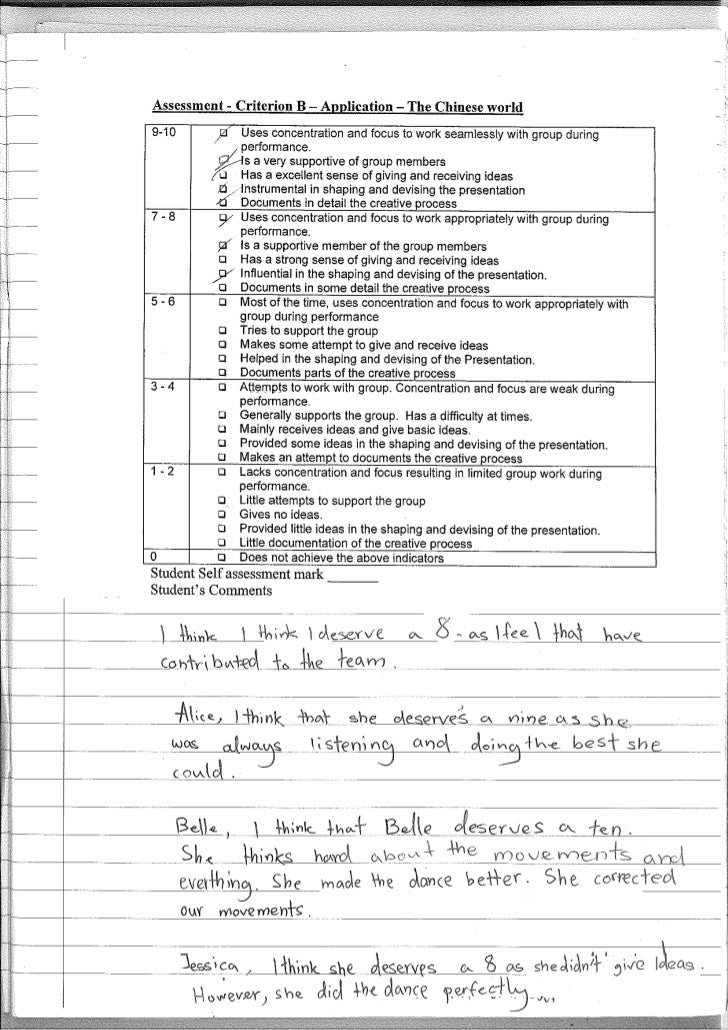 Assessment - Criterion B – Application – The Chinese world
9-10 Uses concentration and focus to work seamlessly with group during
performance.
Is a very supportive of group members
Has a excellent sense of giving and receiving ideas
Instrumental in shaping and devising the presentation
Documents in detail the creative process
7 - 8 Uses concentration and focus to work appropriately with group during
performance.
Is a supportive member of the group members
Has a strong sense of giving and receiving ideas
Influential in the shaping and devising of the presentation.
Documents in some detail the creative process
5 - 6 Most of the time, uses concentration and focus to work appropriately with
group during performance
Tries to support the group
Makes some attempt to give and receive ideas
Helped in the shaping and devising of the Presentation.
Documents parts of the creative process
3 - 4 Attempts to work with group. Concentration and focus are weak during
performance.
Generally supports the group. Has a difficulty at times.
Mainly receives ideas and give basic ideas.
Provided some ideas in the shaping and devising of the presentation.
Makes an attempt to documents the creative process
1 - 2 Lacks concentration and focus resulting in limited group work during
performance.
Little attempts to support the group
Gives no ideas.
Provided little ideas in the shaping and devising of the presentation.
Little documentation of the creative process
0 Does not achieve the above indicators
Student Self assessment mark
Student's Comments
I think I think I deserve a 8 - as I feel that have
contributed to the team.
Alice, I think that she deserves a nine as she
was always listening and doing the best she
could.
Belle, I think that Belle deserves a ten.
She thinks hard about the movements and
everthing. She made the dance better. She corrected
our movements.
Jessica, I think she deserves a 8 as she didn't give Ideas.
However, she did the dance perfectly...